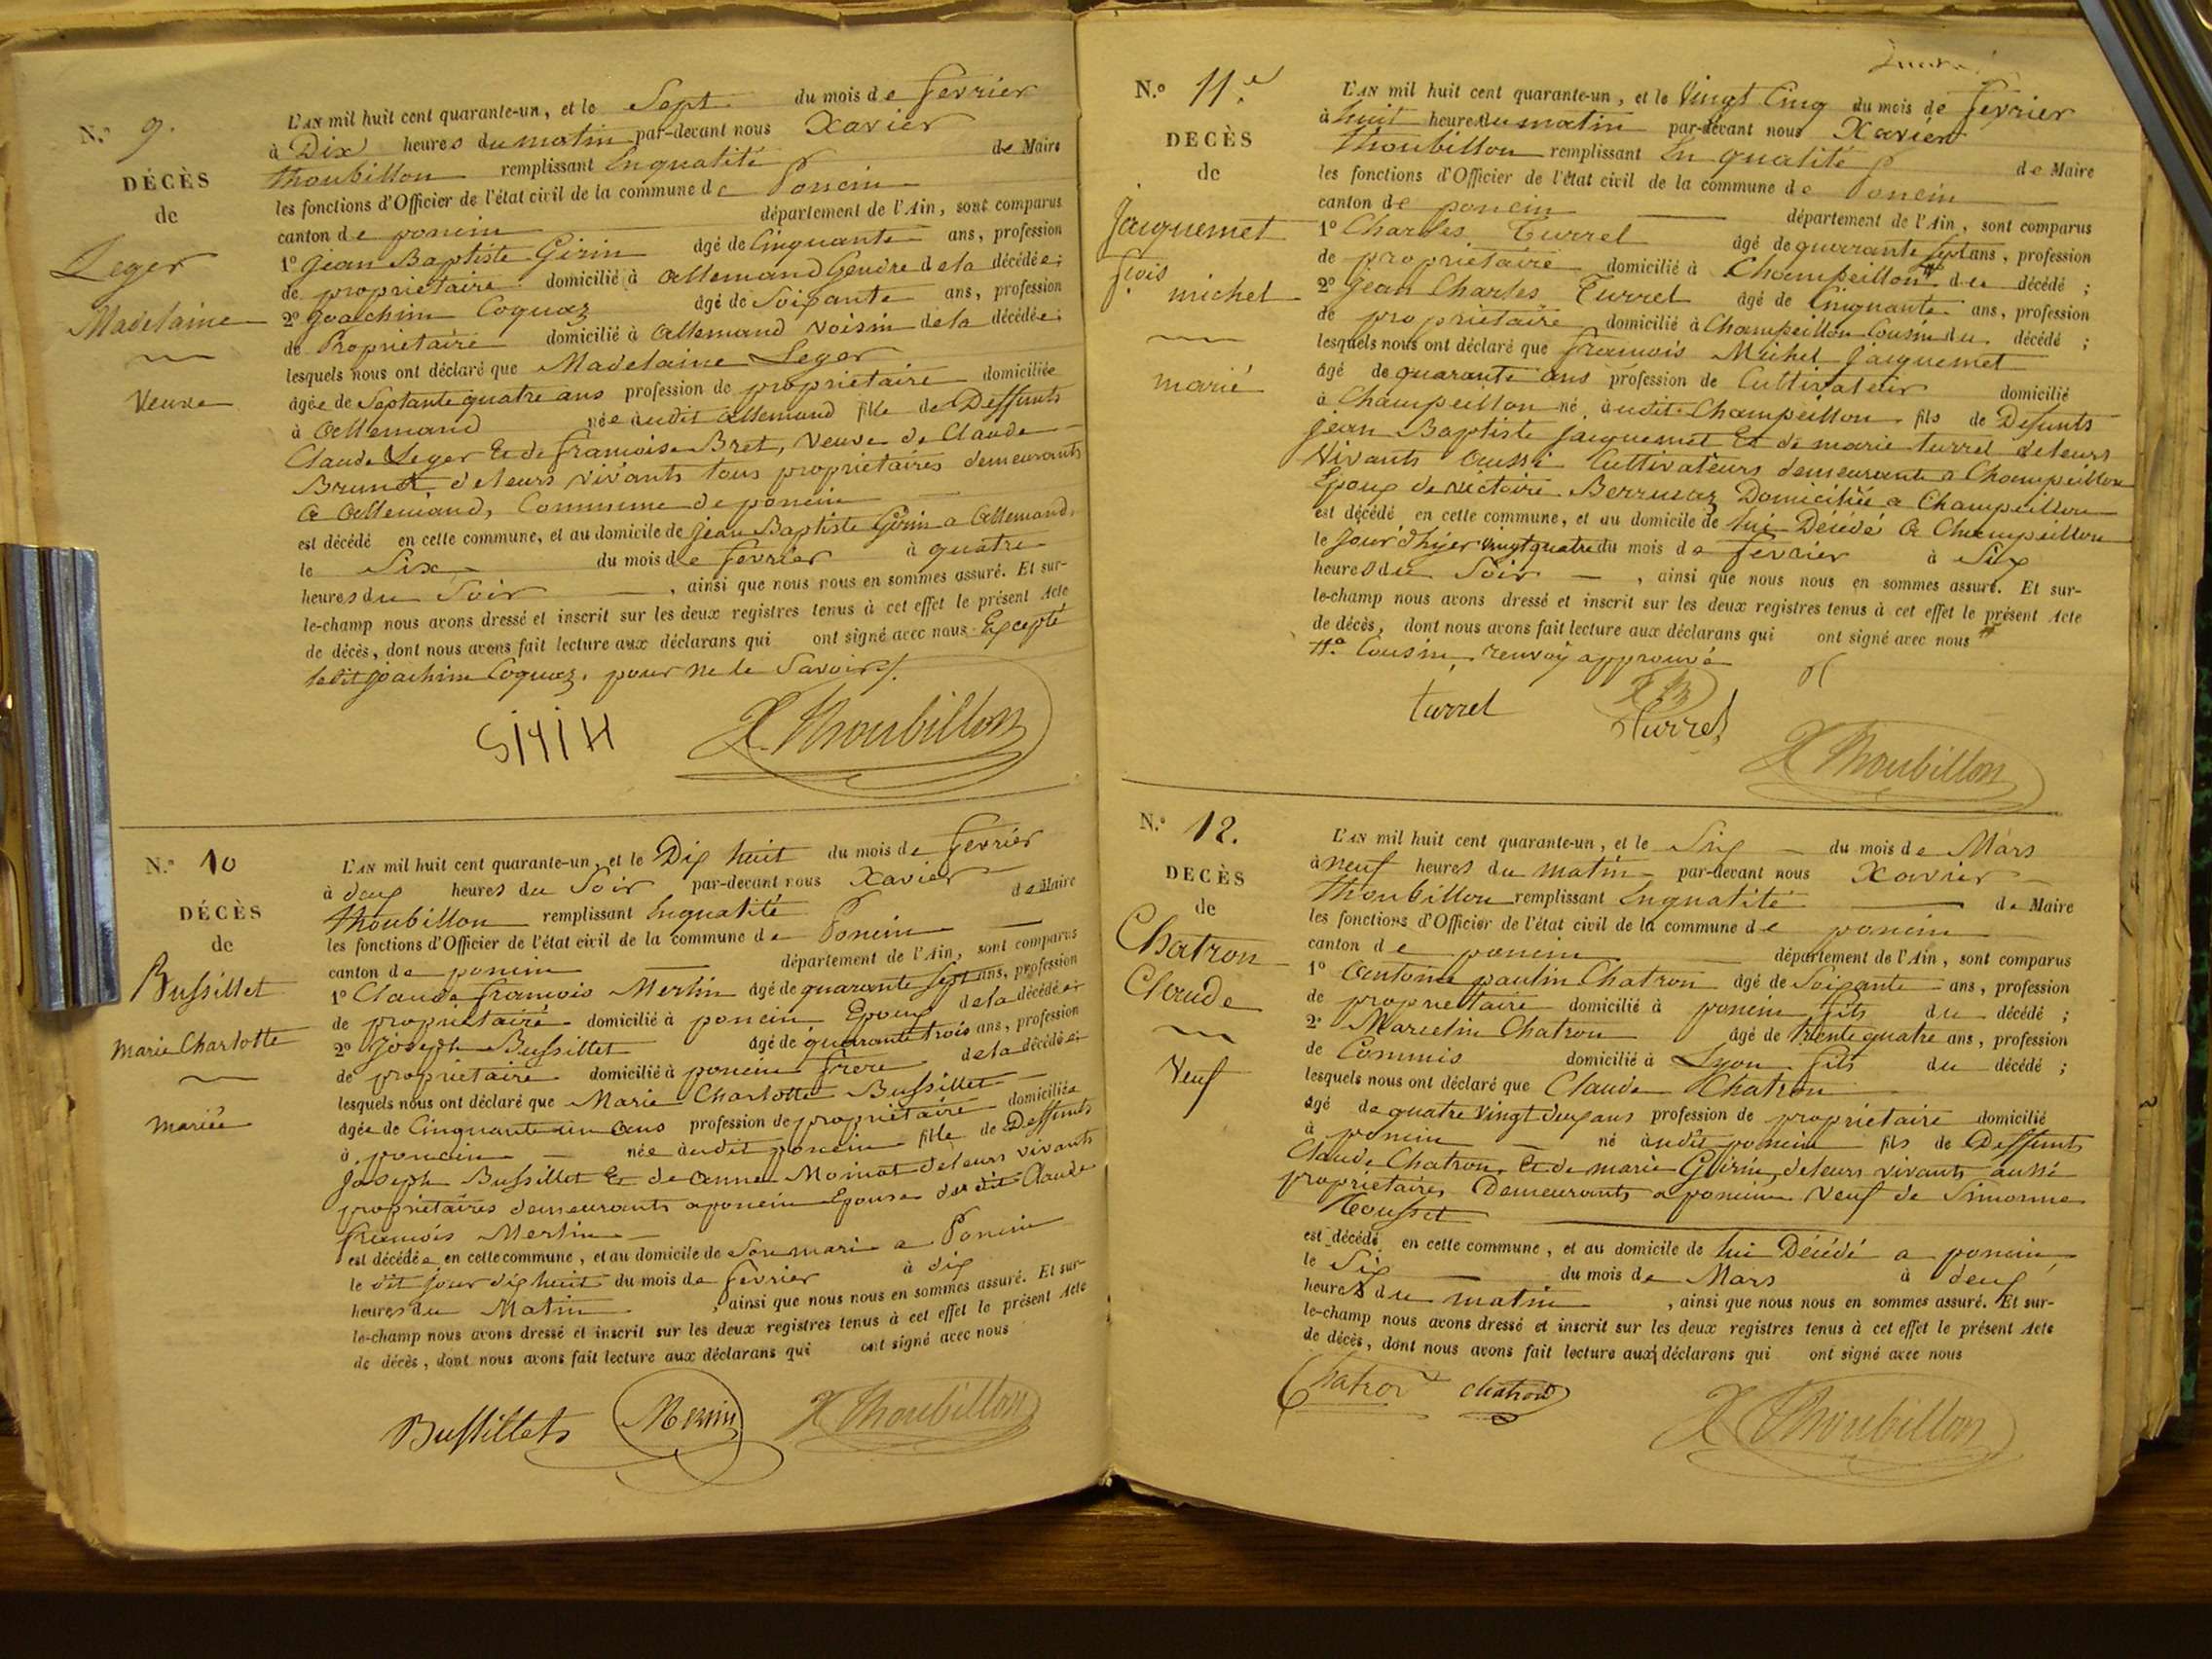 N.º 9.
DÉCÈS
de
Leger
Madelaine
Veuve
L'AN mil huit cent quarante-un, et le Sept du mois de fevrier
à Dix heures du matin par-devant nous Xavier
thoubillon remplissant En qualité de Maire
les fonctions d'Officier de l'état civil de la commune de Poncin
canton de poncin département de l'Ain, sont comparus
1º Jean Baptiste Girin âgé de Cinquante ans, profession
de propriétaire domicilié à allemand Gendre de la décédée;
2º Joachim Coquaz âgé de Soixante ans, profession
de Propriétaire domicilié à allemand voisin de la décédée;
lesquels nous ont déclaré que Madelaine Leger
âgée de Septante quatre ans profession de propriétaire domiciliée
à allemand née audit allemand fille de Deffunts
Claude Leger Et de francoise Bret, veuve de Claude
Brunet, de leurs vivants tous propriétaires demeurants
a allemand, Commune de poncin
est décédé en cette commune, et au domicile de Jean Baptiste Girin a allemand,
le Six du mois de fevrier à quatre
heures du Soir, ainsi que nous nous en sommes assuré. Et sur-
le-champ nous avons dressé et inscrit sur les deux registres tenus à cet effet le présent Acte
de décès, dont nous avons fait lecture aux déclarans qui ont signé avec nous Excepté
ledit joachim Coquaz, pour ne le Savoir.
X. Thoubillon
N.º 10
DÉCÈS
de
Bussillet
marie Charlotte
mariée
L'AN mil huit cent quarante-un, et le Dix huit du mois de fevrier
à deux heures du Soir par-devant nous Xavier
thoubillon remplissant En qualité de Maire
les fonctions d'Officier de l'état civil de la commune de Poncin
canton de poncin département de l'Ain, sont comparus
1º Claude francois Merlin âgé de quarante Sept ans, profession
de propriétaire domicilié à poncin Epoux de la décédée;
2º Joseph Bussillet âgé de quarante trois ans, profession
de propriétaire domicilié à poncin frere de la décédée;
lesquels nous ont déclaré que Marie Charlotte Bussillet
âgée de Cinquante un ans profession de propriétaire domiciliée
à poncin née audit poncin fille de Deffunts
Joseph Bussillet Et de anne Moinat de leurs vivants
propriétaires demeurants a poncin Epouse du dit Claude
francois Merlin
est décédée en cette commune, et au domicile de Son mari a Poncin
le dit jour dix huit du mois de fevrier à dix
heures du Matin, ainsi que nous nous en sommes assuré. Et sur-
le-champ nous avons dressé et inscrit sur les deux registres tenus à cet effet le présent Acte
de décès, dont nous avons fait lecture aux déclarans qui ont signé avec nous
Bussillet Merlin X Thoubillon
N.º 11.e
DECÈS
de
Jacquemet
fçois
michel
marié
L'AN mil huit cent quarante-un, et le Vingt Cinq du mois de fevrier
à huit heures du matin par-devant nous Xavier
thoubillon remplissant En qualité de Maire
les fonctions d'Officier de l'état civil de la commune de Poncin
canton de poncin département de l'Ain, sont comparus
1º Charles Turrel âgé de quarante Sept ans, profession
de propriétaire domicilié à Champeillon # du décédé;
2º Jean Charles Turrel âgé de Cinquante ans, profession
de propriétaire domicilié à Champeillon Cousin du décédé;
lesquels nous ont déclaré que francois Michel Jacquemet
âgé de quarante ans profession de Cultivateur domicilié
à Champeillon né audit Champeillon fils de Defunts
Jean Baptiste Jacquemet Et de marie turrel de leurs
Vivants aussi Cultivateurs demeurants a Champeillon
Epoux de victoire Berruaz Domiciliée a Champeillon
est décédé en cette commune, et au domicile de lui Décédé a Champeillon
le Jour d'hyer vingt quatre du mois de fevrier à Six
heures du Soir, ainsi que nous nous en sommes assuré. Et sur-
le-champ nous avons dressé et inscrit sur les deux registres tenus à cet effet le présent Acte
de décès, dont nous avons fait lecture aux déclarans qui ont signé avec nous #
#. Cousin, renvoy approuvé
turrel Turrel
X Thoubillon
N.º 12.
DECÈS
de
Chatron
Claude
Veuf
L'AN mil huit cent quarante-un, et le Six du mois de Mars
à neuf heures du matin par-devant nous Xavier
thoubillon remplissant En qualité de Maire
les fonctions d'Officier de l'état civil de la commune de poncin
canton de poncin département de l'Ain, sont comparus
1º antoine paulin Chatron âgé de Soixante ans, profession
de propriettaire domicilié à poncin fils du décédé;
2º Marcelin Chatron âgé de trente quatre ans, profession
de Commis domicilié à Lyon fils du décédé;
lesquels nous ont déclaré que Claude Chatron
âgé de quatre vingt deux ans profession de propriétaire domicilié
à poncin né audit poncin fils de Deffunts
Claude Chatron, Et de marie Guirin, de leurs vivants aussi
propriétaires Demeurants a poncin veuf de Simonne
Rousset
est décédé en cette commune, et au domicile de lui Décédé a poncin
le Six du mois de Mars à deux
heures du matin, ainsi que nous nous en sommes assuré. Et sur-
le-champ nous avons dressé et inscrit sur les deux registres tenus à cet effet le présent Acte
de décès, dont nous avons fait lecture aux déclarans qui ont signé avec nous
Chatron chatron X Thoubillon